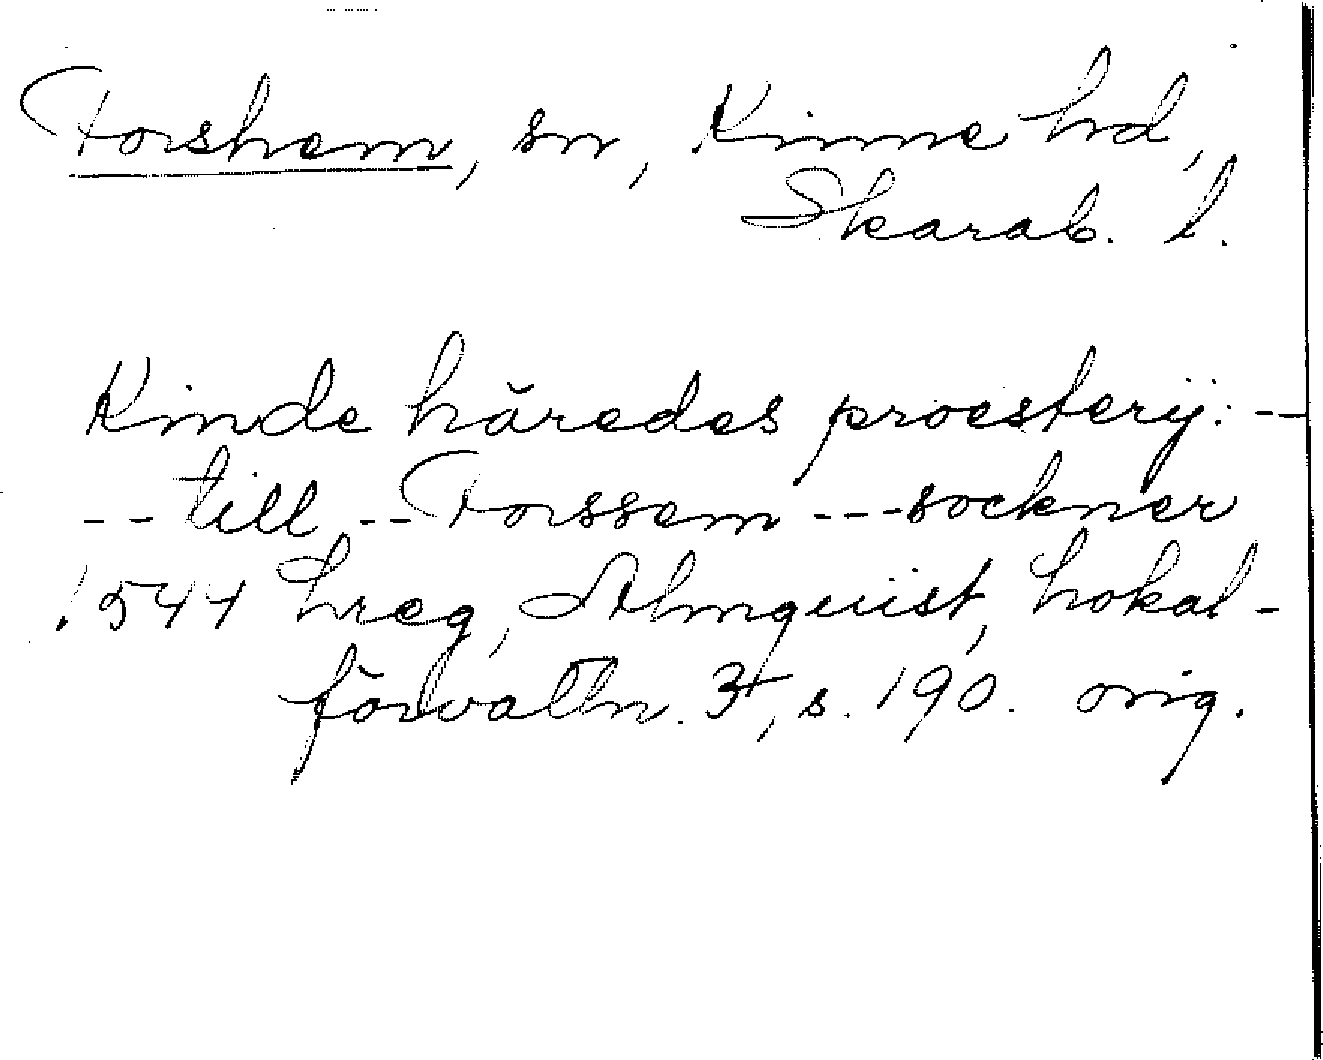 Forshem, sn, Kinne hd,
Skarab. l.
Kinde häredes proesterij: --
-- till -- Forssem --- sockner
1544 hreg, Almquist, Lokal-
förvaltn. 3+, s. 190. orig.